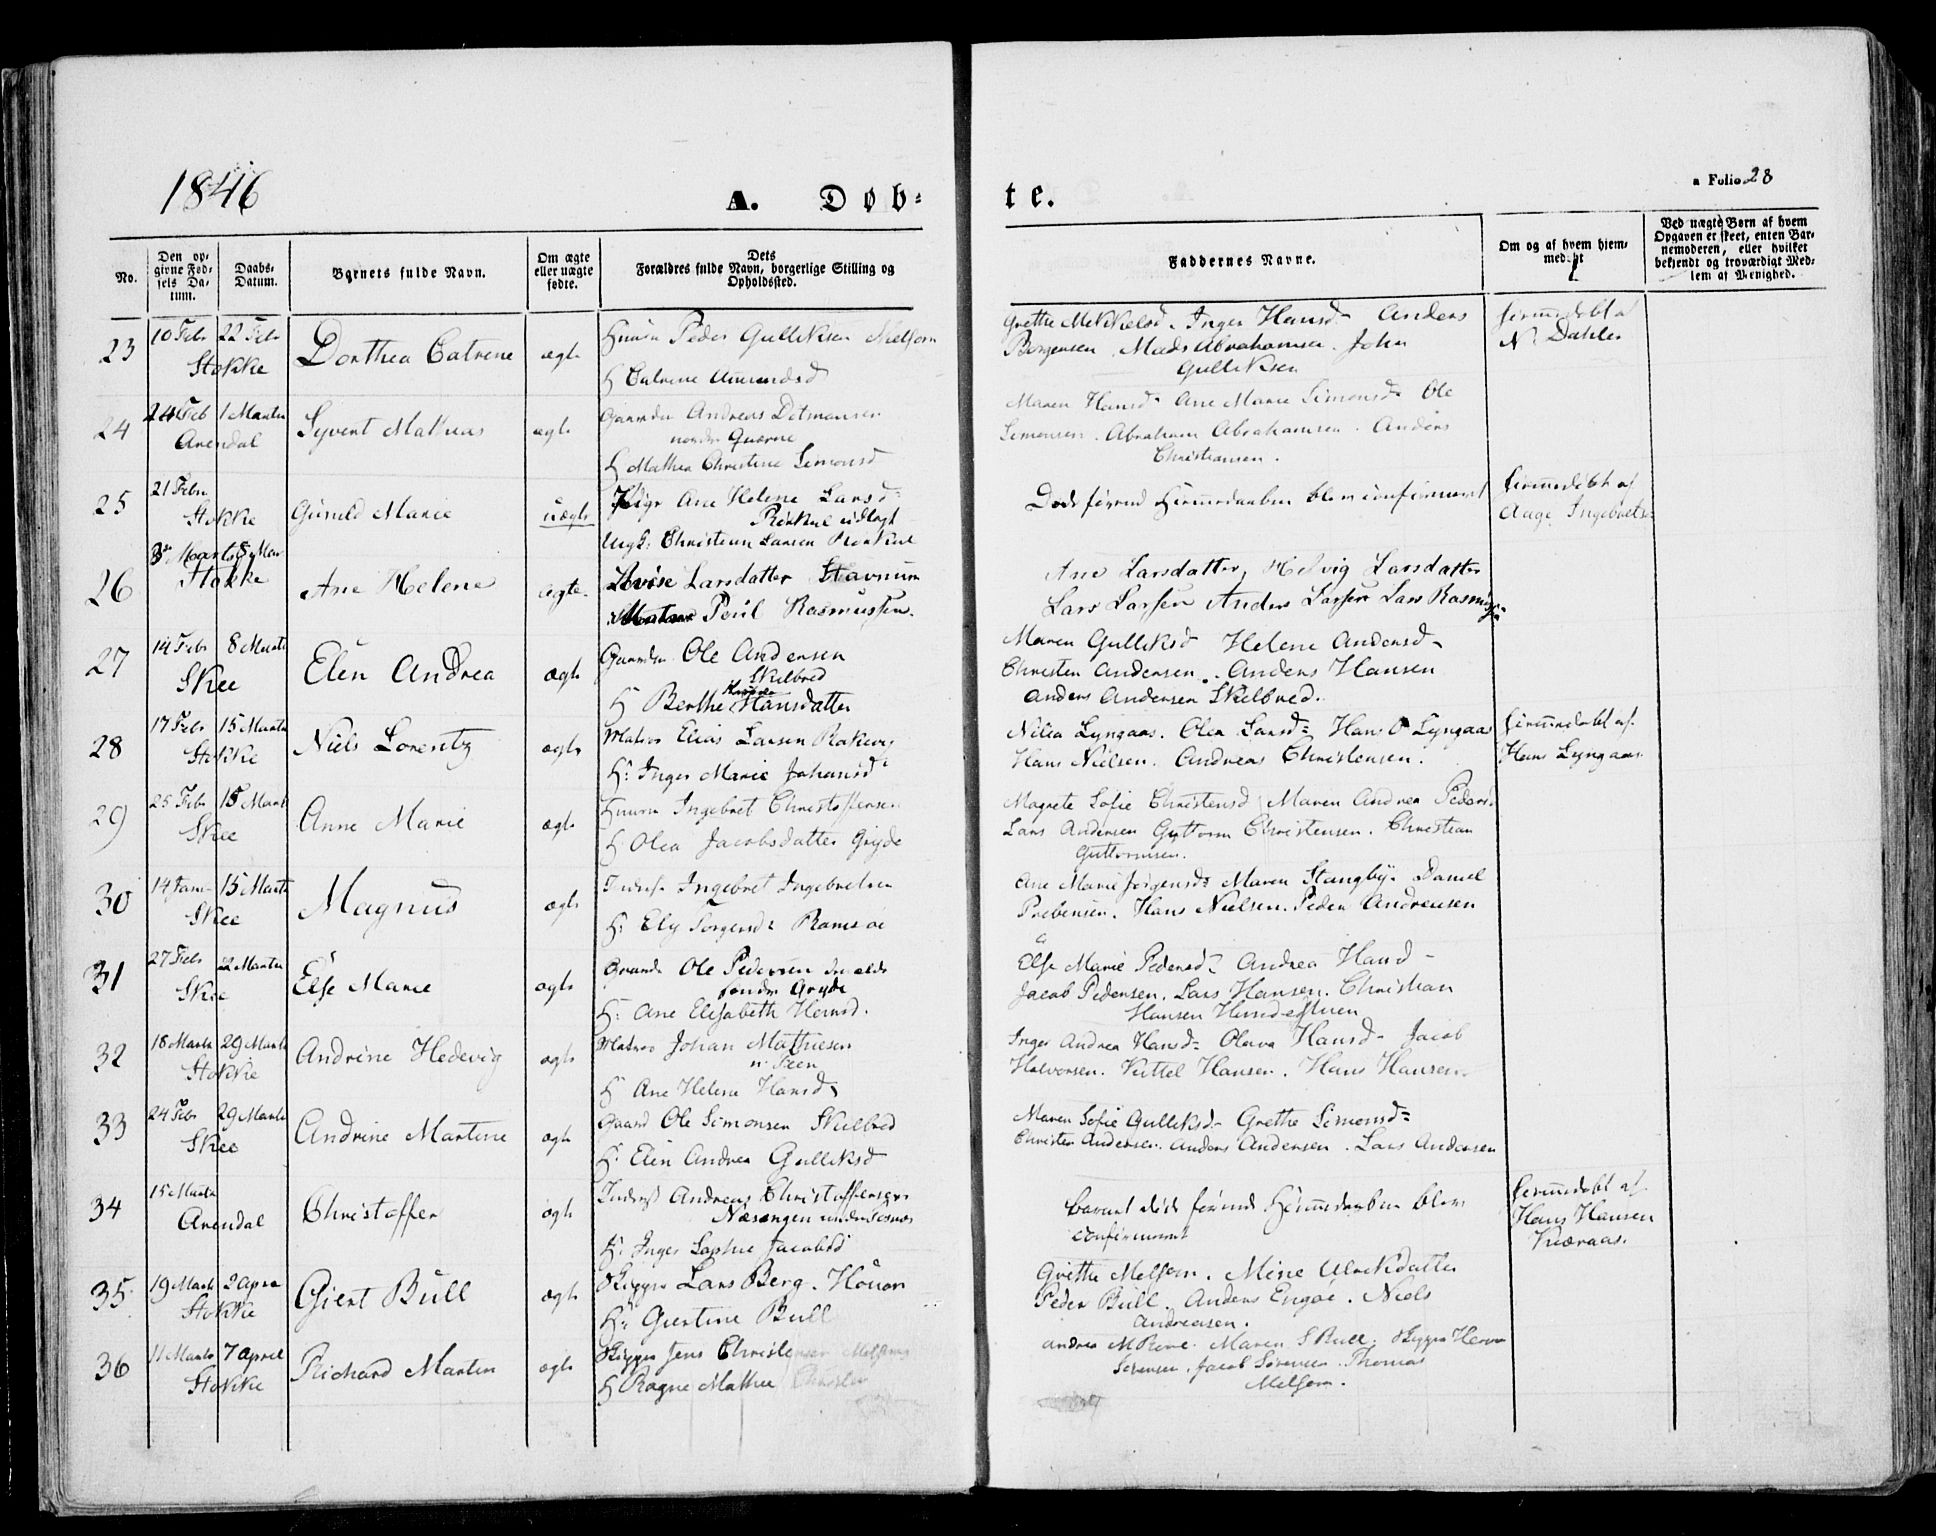 1846
A. Døb-
te.
a Folio 28
No.
Den op-
givne Fød-
sels Da-
tum.
Daabs-
Datum.
Barnets fulde Navn.
Om ægte
eller uægte
fødte.
Dets
Forældres fulde Navn, borgerlige Stilling og
Opholdssted.
Faddernes Navne.
Om og af hvem hjem-
medøbt
Ved uægte Børn af hvem
Opgaven er skeet, enten Bar-
nemoderen, eller hvilket
bekjendt og troværdigt Med-
lem af Menighed.
23
10 Febr 22 Febr
Stokke
Dorthea Catrine
ægte
Peder Gulliksen Melsom
H Catrine Amundsd
Grethe Mikkelsd. Inger Hansd Anders
Borgensen Mads Abrahamsen. John
Gulliksen
hiemmedøbt af
N. Dahler
24
24 Feb 1 Marts
Arendal
Syvert Mathias
ægte
Gaardm Andreas Ditmansen
nordre Quærne
H Mathea Christine Simonsd
Maren Hansd. Ane Marie Simonsd Ole
Simonsen. Abraham Abrahamsen. Anders
Christiansen.
25
21 Febr
Stokke
Gunild Marie
uægte
Pige Ane Helene Larsd
udlagt
Ungk: Christian Larsen
Døde førend Hiemmedaaben blev confirmeret
hiemmedøbt af
Aage Ingebrets
26
Marts
Stokke
Ane Helene
ægte
Lovise Larsdatter Stavnum
Poul Rasmussen
Ane Larsdatter, Hedvig Larsdatter
Lars Larsen Anders Larsen Lars Rasmus-
27
14 Febr 8 Marts
Skee
Elen Andrea
ægte
Gaardm Ole Andersen
Skilbred
H Berthe Hansdatter
Maren Gulliksd Helene Andersd
Christen Andersen. Anders Hansen
Anders Andersen Skilbred.
28
17 Febr 15 Marts
Stokke
Niels Lorentz
ægte
Matros Elias Larsen Rakevig
H: Inger Marie Johansd
Nilea Lyngaas. Olea Larsd Hans O Lyngaas
Hans Nielsen. Andreas Christensen.
hiemmedøbt af
Hans Lyngaas
29
25 Febr 15 Marts
Skee
Anne Marie
ægte
Ingebret Christoffersen
H Olea Jacobsdatter Gryde
Magrete Sofie Christensd Maren Andrea Peders
Lars Andersen Guttorm Christensen. Christian
Guttormsen.
30
14 Janr 15 Marts
Skee
Magnus
ægte
Inders Ingebret Ingebretsen
H: Ely Jorgensd Ramsøe
Ane Marie Jørgensd Maren Stangbye Daniel
Prebensen. Hans Nielsen. Peder Andreasen
31
27 Febr 22 Marts
Skee
Else Marie
ægte
Gaardm Ole Pedersen den ældr
søndr Gryde
H: Ane Elisabeth
Else Marie Pedersd Andrea Hansd
Jacob Pedersen. Lars Hansen. Christian
Hansen
32
18 Marts 29 Marts
Stokke
Andrine Hedevig
ægte
Matros Johan Mathiesen
H Ane Helene Hansd
Inger Andrea Hansd Olava Hansd Jacob
Halvorsen. Kittel Hansen. Hans Hansen
33
24 Febr 29 Marts
Skee
Andrine Martine
ægte
Gaard Ole Simonsen Skilbred
H: Elen Andrea Gulliksd
Maren Sofie Gulliksd Grethe Simonsd
Christen Andersen. Anders Andersen. Lars Andersen
34
15 Marts
Arendal
Christoffer
ægte
Inderst Andreas Christoffersen
Næsengen under
H: Inger Sophie Jacobsd
Barnet død førend Hiemmedaaben blev
confirmeret
hiemmedøbt af
Hans Hansen
Kieraas.
35
19 Marts 2 April
Stokke
Giert Bull
ægte
Skipper Lars Berg. Houen
H: Giertine Bull
Grethe Melsom. Mine Ulriksdatter
Peder Bull. Anders Engøe. Niels
Andreasen.
36
11 Marts 7 April
Stokke
Richard Martin
ægte
Skipper Jens Christensen Melsom
H Ragne Mathea
Andrea M Røve. Maren S Bull. Skipper
Sørensen. Jacob Sørensen. Thomas
Melsom.